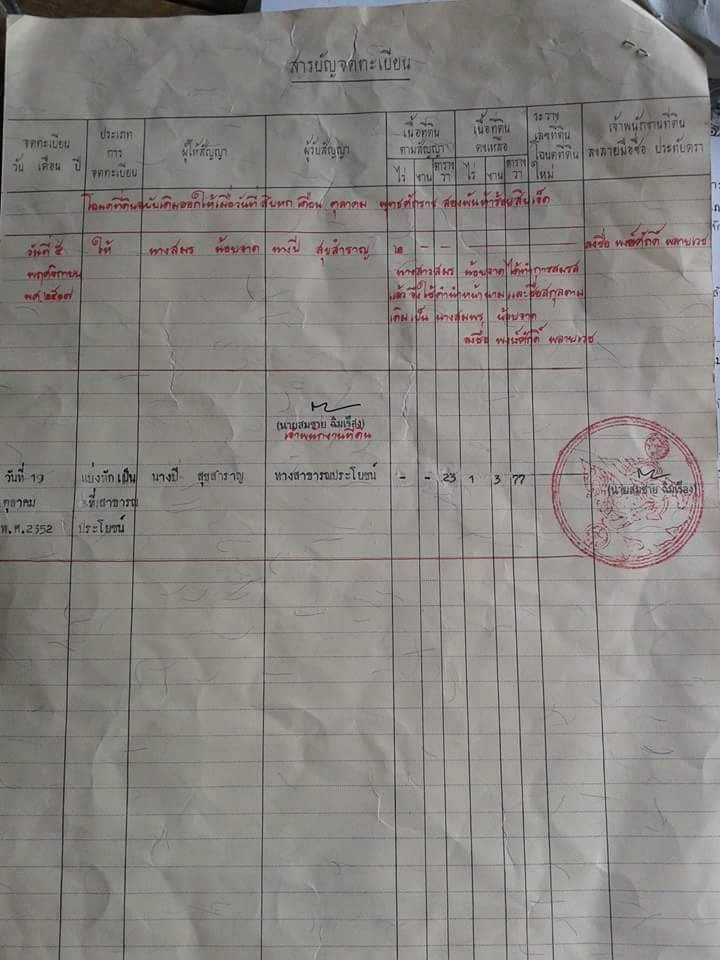 สารบัญจดทะเบียน
จดทะเบียน
วัน เดือน ปี
ประเภท
การ
จดทะเบียน
ผู้ให้สัญญา
ผู้รับสัญญา
เนื้อที่ดิน
ตามสัญญา
ไร่ งาน ตาราง
วา
เนื้อที่ดิน
คงเหลือ
ไร่ งาน ตาราง
วา
ระวาง
เลขที่ดิน
โฉนดที่ดิน
ใหม่
เจ้าพนักงานที่ดิน
ลงลายมือชื่อ ประทับตรา
โฉนดที่ดินฉบับเดิมออกให้เมื่อวันที่ สิบหก เดือน ตุลาคม พุทธศักราช สองพันห้าร้อยสิบเจ็ด
วันที่ ๕
พฤศจิกายน
พศ ๒๕๑๗
ให้
นางสมร น้อยจาด
นางปี สุขสำราญ
๒ - -
ลงชื่อ พงษ์ศักดิ์ พลายเวช
นางสาวสมร น้อยจาด ได้ทำการสมรส
แล้ว จึงใช้คำนำหน้านาม และชื่อสกุลตาม
เดิมเป็น นางสมร น้อยจาด
ลงชื่อ พงษ์ศักดิ์ พลายเวช
(นายสมชาย ฉิมเรือง)
เจ้าพนักงานที่ดิน
วันที่ 19
ตุลาคม
พ.ศ.2552
แบ่งหักเป็น
ที่สาธารณ
ประโยชน์
นางปี สุขสำราญ
ทางสาธารณประโยชน์
- - 23 1 3 77
(นายสมชาย ฉิมเรือง)